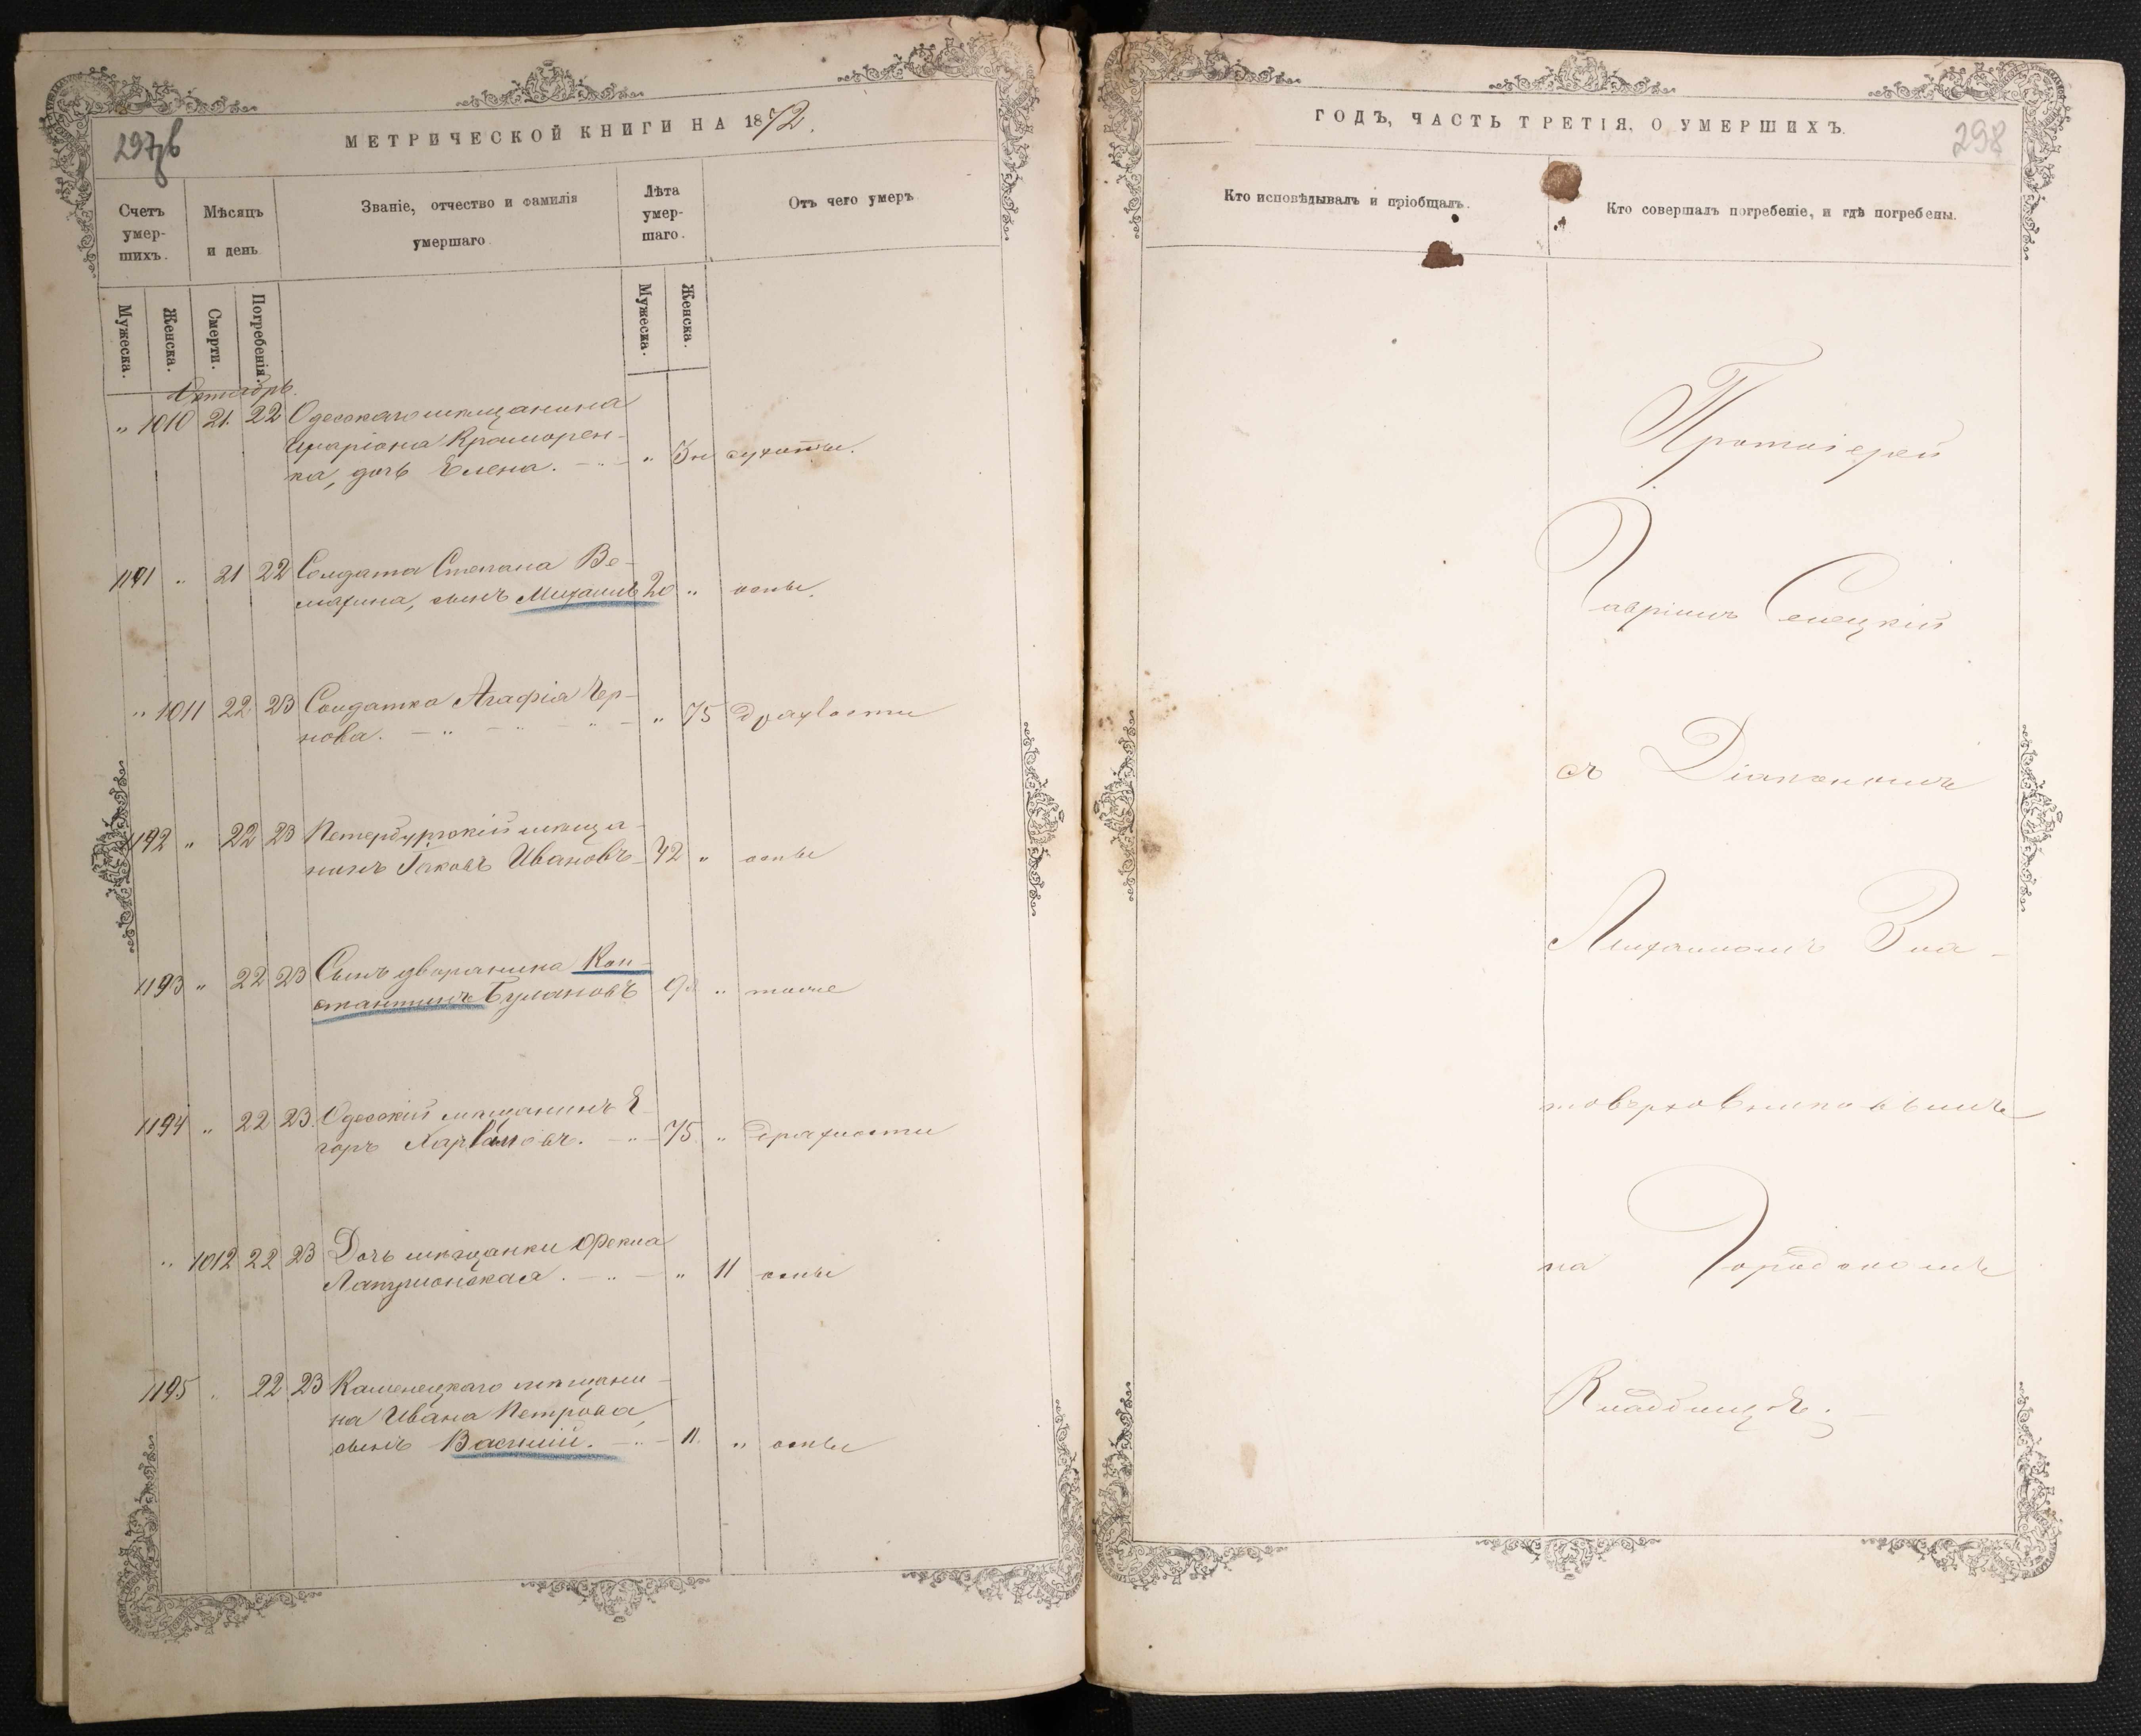 297об
МЕТРИЧЕСКОЙ КНИГИ НА 1872.
Счетъ умер-шихъ.
Мѣсяцъ и день
Званіе, отчество и фамилія умершаго.
Лѣта умер-шаго.
Отъ чего умеръ
Мужеска.
Женска.
Смерти.
Погребенія.
Мужеска.
Женска.
Октябрь.
" 1010 21. 22 Одесскаго мѣщанина
Иларіона Крамарен-
ка, дочь Елена. — " — " сухоты.
1191 " 21 22 Солдата Степана Ве-
сынъ Михаилъ " оспы.
" 1011 22 23 Солдатка Агафія Чер-
нова. — " — " — " — " 75 Дряхлости
1192 " 22 23 Петербургскій мѣща-
нинъ Іаковъ Ивановъ 42 " оспы
1193 " 22 23 Сынъ дворянина Кон-
стантинъ Булановъ "
1194 " 22 23. Одесскій мѣщанинъ Е-
горъ — " — 75. " дряхлости
" 1012 22 23 Дочь мѣщанки Ѳекла
— " — " 11 оспы
1195 . 22 23 Каменецкаго мѣщани-
на Ивана Петрова,
сынъ Василій. — " — 11. " оспы
ГОДЪ, ЧАСТЬ ТРЕТІЯ, О УМЕРШИХЪ.
298
Кто исповѣдывалъ и пріобщалъ.
Кто совершалъ погребеніе, и гдѣ погребены.
Протоіерей
Гавріилъ Селецкій
съ Діакономъ
Михаиломъ Зла-
товерховниковымъ
на Городскомъ
Кладбищѣ.